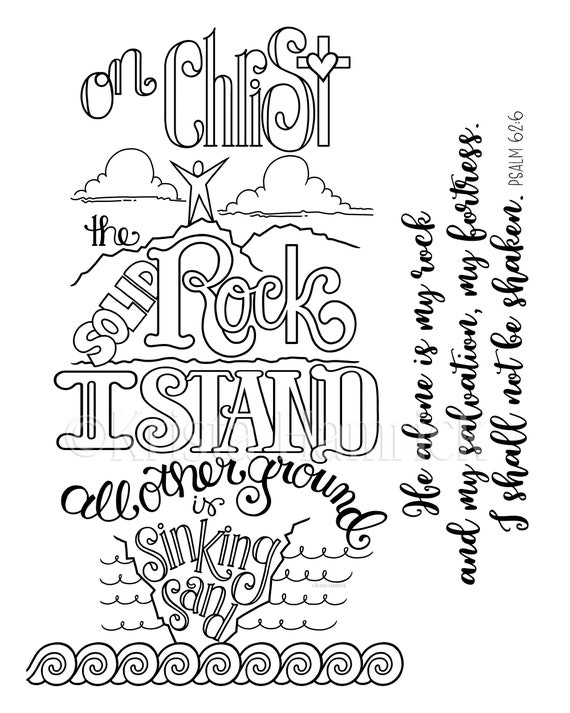 on Christ
the
SOLID Rock
I STAND
all other ground
is
Sinking
Sand
He alone is my rock
and my salvation, my fortress.
I shall not be shaken. PSALM 62:6
©Krista Hamrick